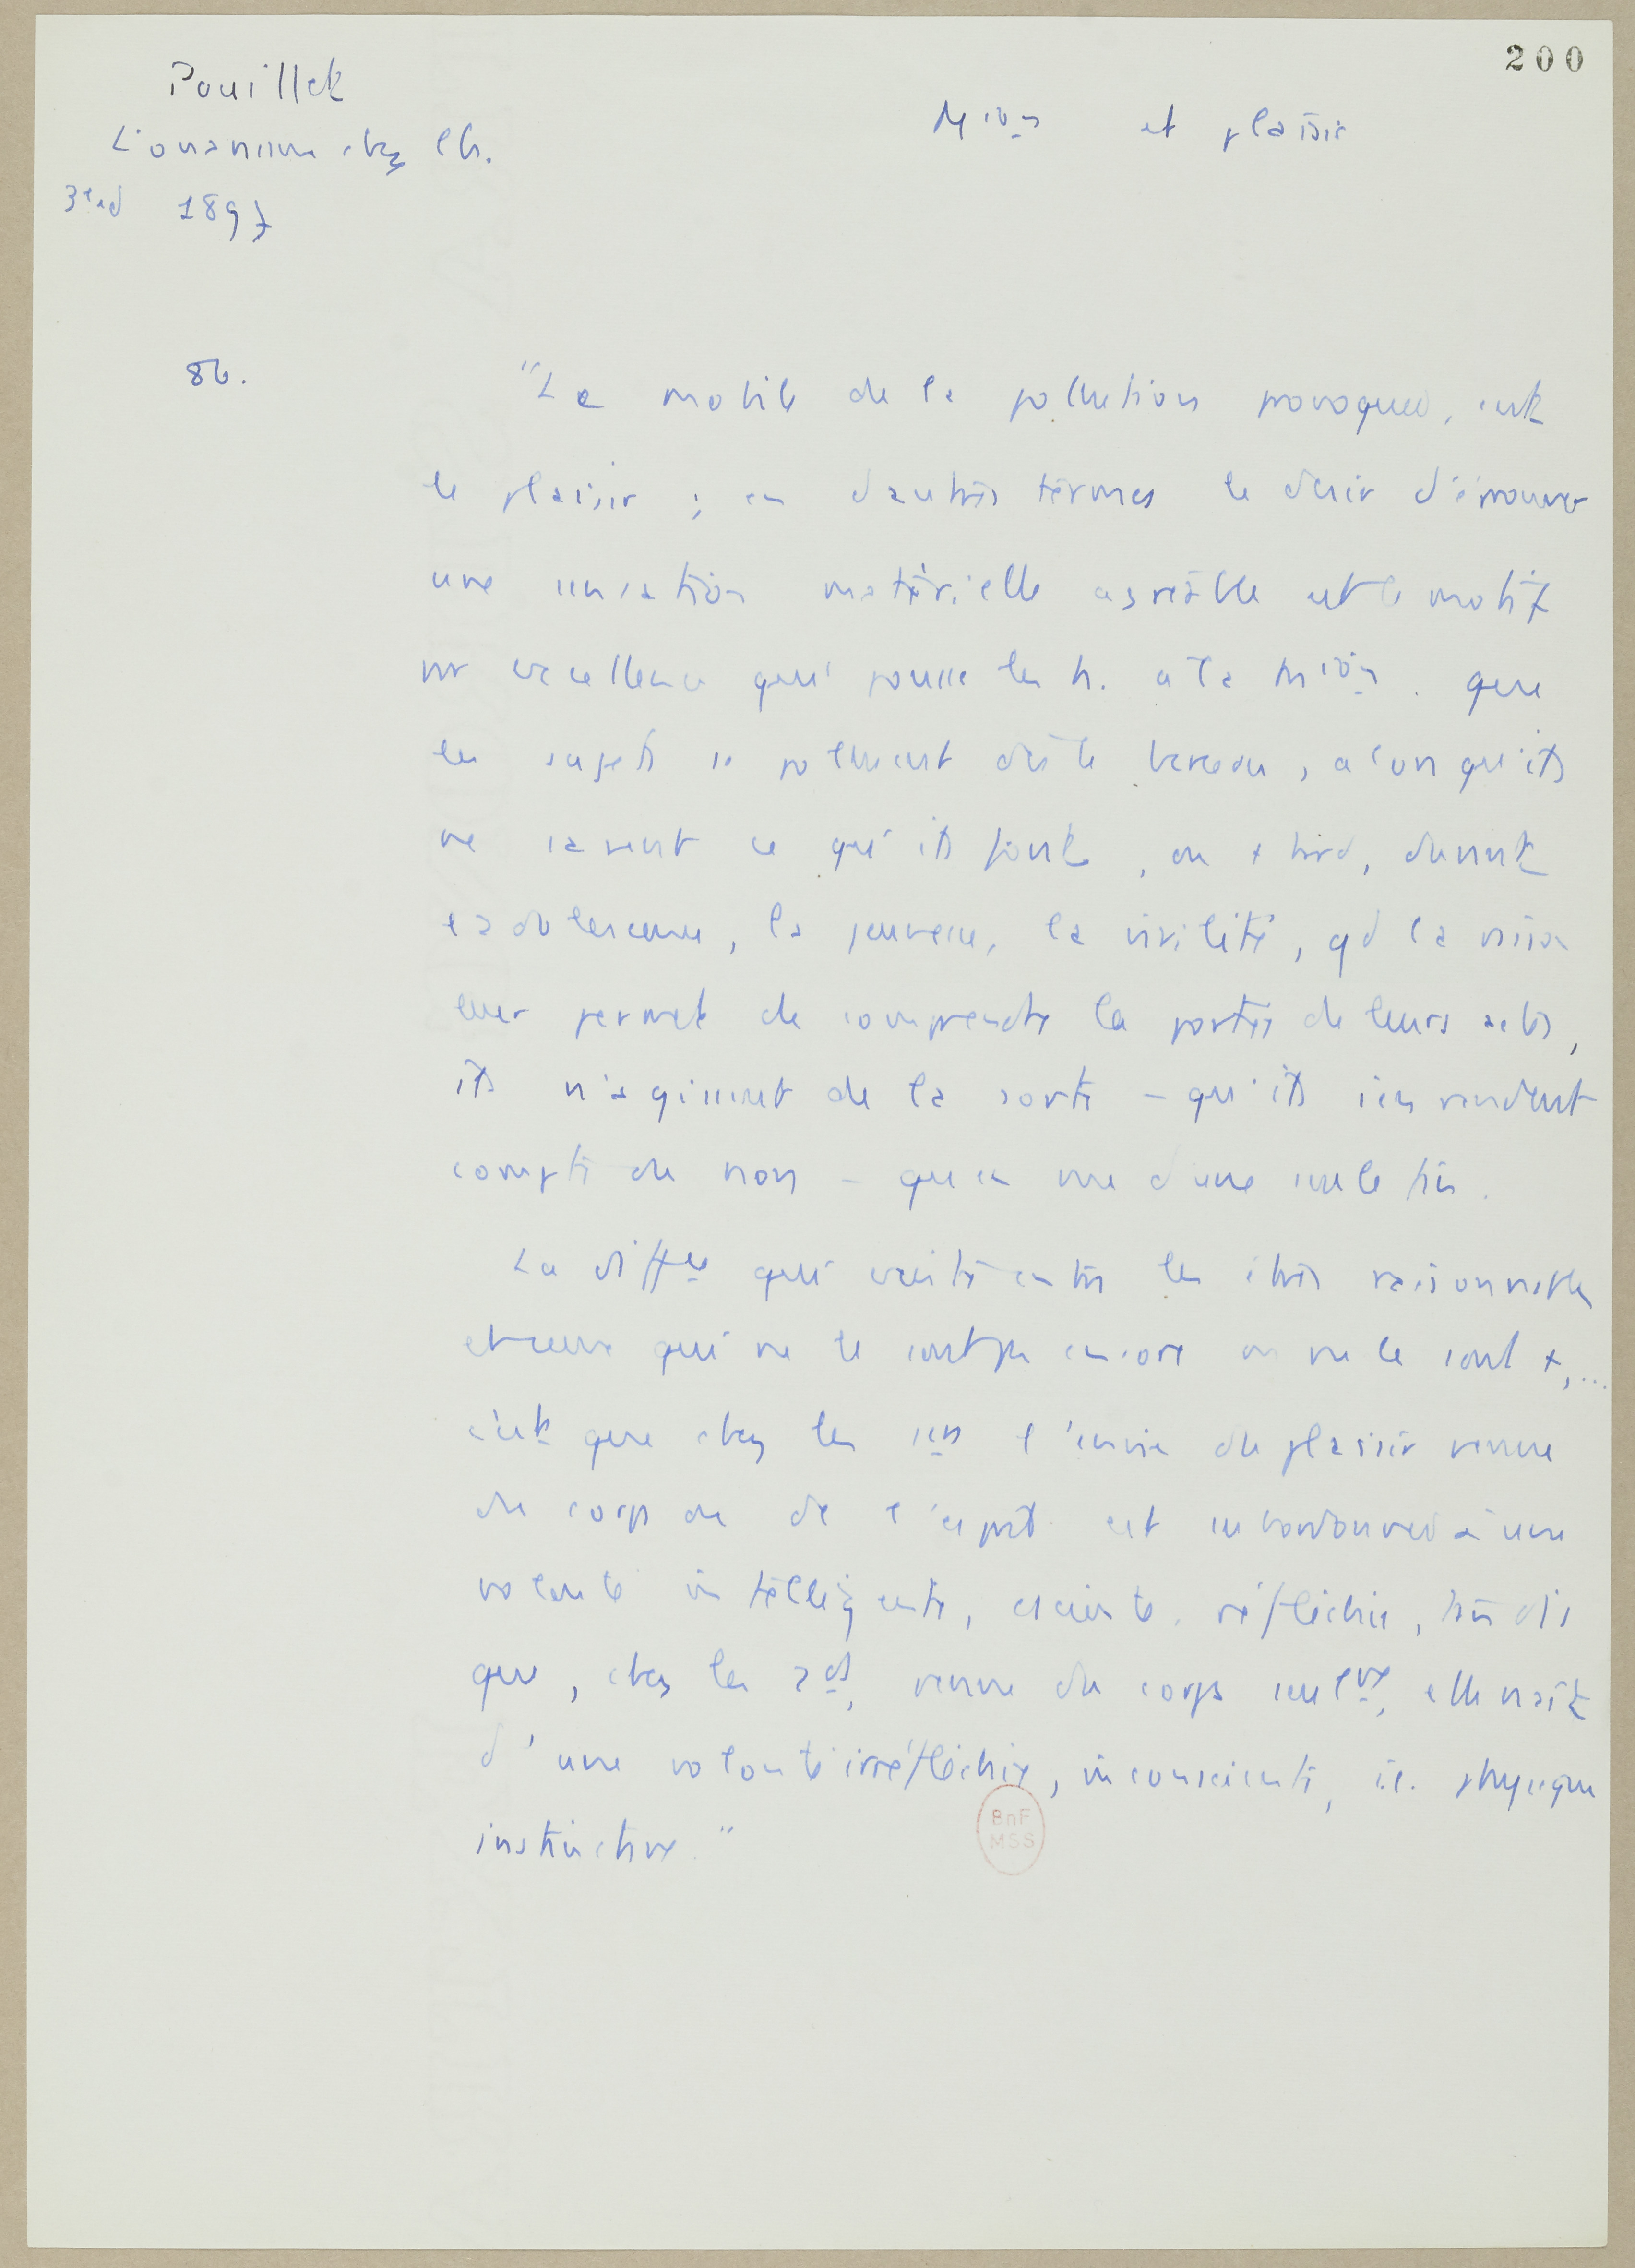 200
Pouillet
L'onanisme chez l'h.
3e ed 1897
Mion et plaisir
86.
"Le mobile de la pollution provoquée, c'est
le plaisir ; en d'autres termes le désir d'éprouver
une sensation matérielle agréable est le motif
par excellence qui pousse les h. à la mion. que
les sujets se polluent dès le berceau, alors qu'ils
ne savent ce qu'ils font, ou + tard, durant
l'adolescence, la jeunesse, la virilité, qd la raison
leur permet de comprendre la portée de leurs actes,
ils n'agissent de la sorte – qu'ils s'en rendent
compte ou non – qu'en vue d'une seule fin.
La diffce qui existe entre les êtres raisonnables
et ceux qui ne le sont pas encore ou ne le sont +,...
c'est que chez les 1ers l'envie du plaisir venue
du corps ou de l'esprit est subordonnée à une
volonté intelligente, csciente, réfléchie, tandis
que, chez les 2ds, venue du corps seulvt, elle naît
d'une volonté irréfléchie, inconsciente, i.e. physique
instinctive."
BnF
MSS